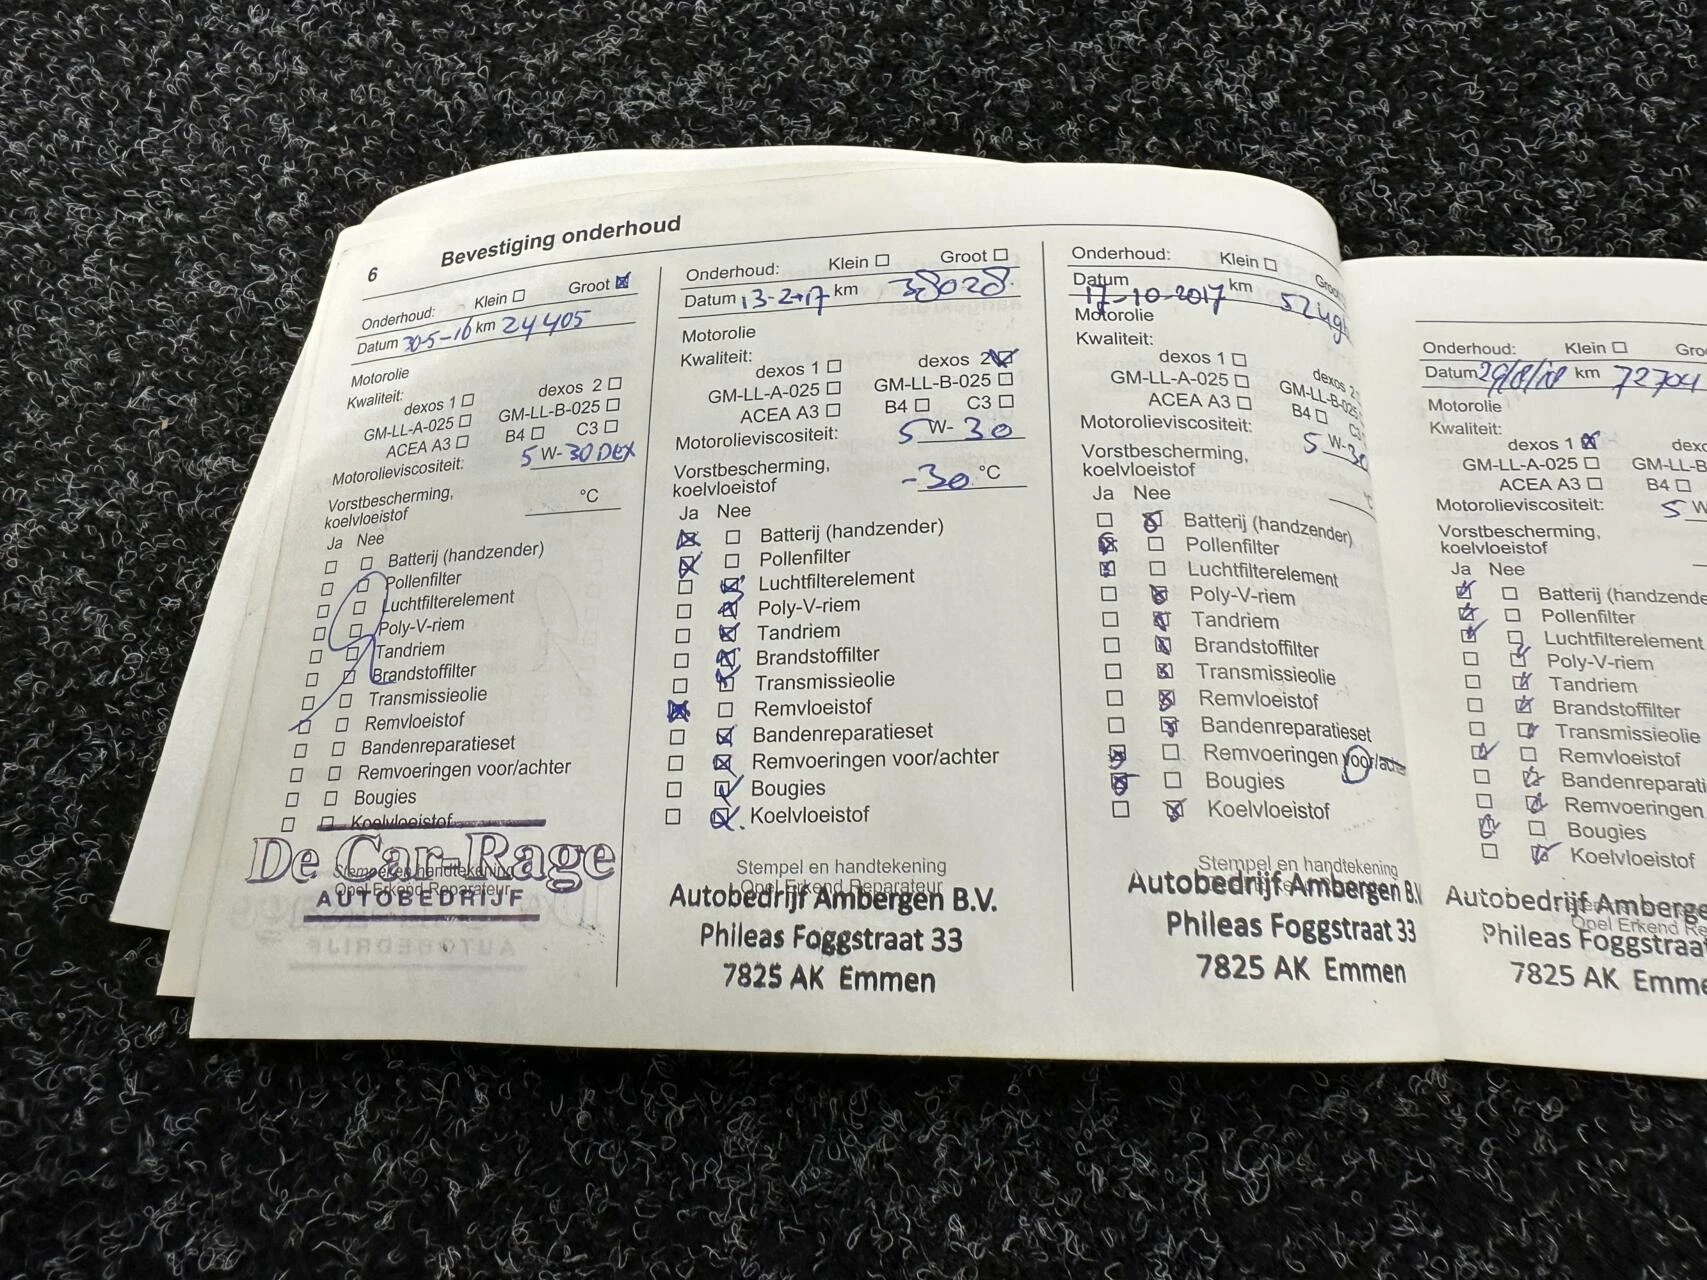 6 Bevestiging onderhoud
Onderhoud: Klein Groot
Datum 30-5-16 km 24405
Motorolie
Kwaliteit:
dexos 1 dexos 2
GM-LL-A-025 GM-LL-B-025
ACEA A3 B4 C3
Motorolieviscositeit: 5 W-30 DEX
Vorstbescherming,
koelvloeistof °C
Ja Nee
Batterij (handzender)
Pollenfilter
Luchtfilterelement
Poly-V-riem
Tandriem
Brandstoffilter
Transmissieolie
Remvloeistof
Bandenreparatieset
Remvoeringen voor/achter
Bougies
Koelvloeistof
De Car-Rage
Stempel en handtekening
Opel Erkend Reparateur
AUTOBEDRIJF
Onderhoud: Klein Groot
Datum 13-2-17 km 38028
Motorolie
Kwaliteit:
dexos 1 dexos 2
GM-LL-A-025 GM-LL-B-025
ACEA A3 B4 C3
Motorolieviscositeit: 5 W-30
Vorstbescherming,
koelvloeistof -30 °C
Ja Nee
Batterij (handzender)
Pollenfilter
Luchtfilterelement
Poly-V-riem
Tandriem
Brandstoffilter
Transmissieolie
Remvloeistof
Bandenreparatieset
Remvoeringen voor/achter
Bougies
Koelvloeistof
Stempel en handtekening
Opel Erkend Reparateur
Autobedrijf Ambergen B.V.
Phileas Foggstraat 33
7825 AK Emmen
Onderhoud: Klein Groot
Datum 17-10-2017 km
Motorolie
Kwaliteit:
dexos 1 dexos 2
GM-LL-A-025 GM-LL-B-025
ACEA A3 B4 C3
Motorolieviscositeit: 5 W-30
Vorstbescherming,
koelvloeistof
Ja Nee
Batterij (handzender)
Pollenfilter
Luchtfilterelement
Poly-V-riem
Tandriem
Brandstoffilter
Transmissieolie
Remvloeistof
Bandenreparatieset
Remvoeringen voor/achter
Bougies
Koelvloeistof
Stempel en handtekening
Autobedrijf Ambergen B.V
Phileas Foggstraat 33
7825 AK Emmen
Onderhoud: Klein Gro
Datum km 72704
Motorolie
Kwaliteit:
dexos 1 dexo
GM-LL-A-025 GM-LL-B
ACEA A3 B4
Motorolieviscositeit: 5 W
Vorstbescherming,
koelvloeistof
Ja Nee
Batterij (handzende
Pollenfilter
Luchtfilterelement
Poly-V-riem
Tandriem
Brandstoffilter
Transmissieolie
Remvloeistof
Bandenreparati
Remvoeringen
Bougies
Koelvloeistof
Autobedrijf Amberge
Opel Erkend Re
Phileas Foggstraa
7825 AK Emme